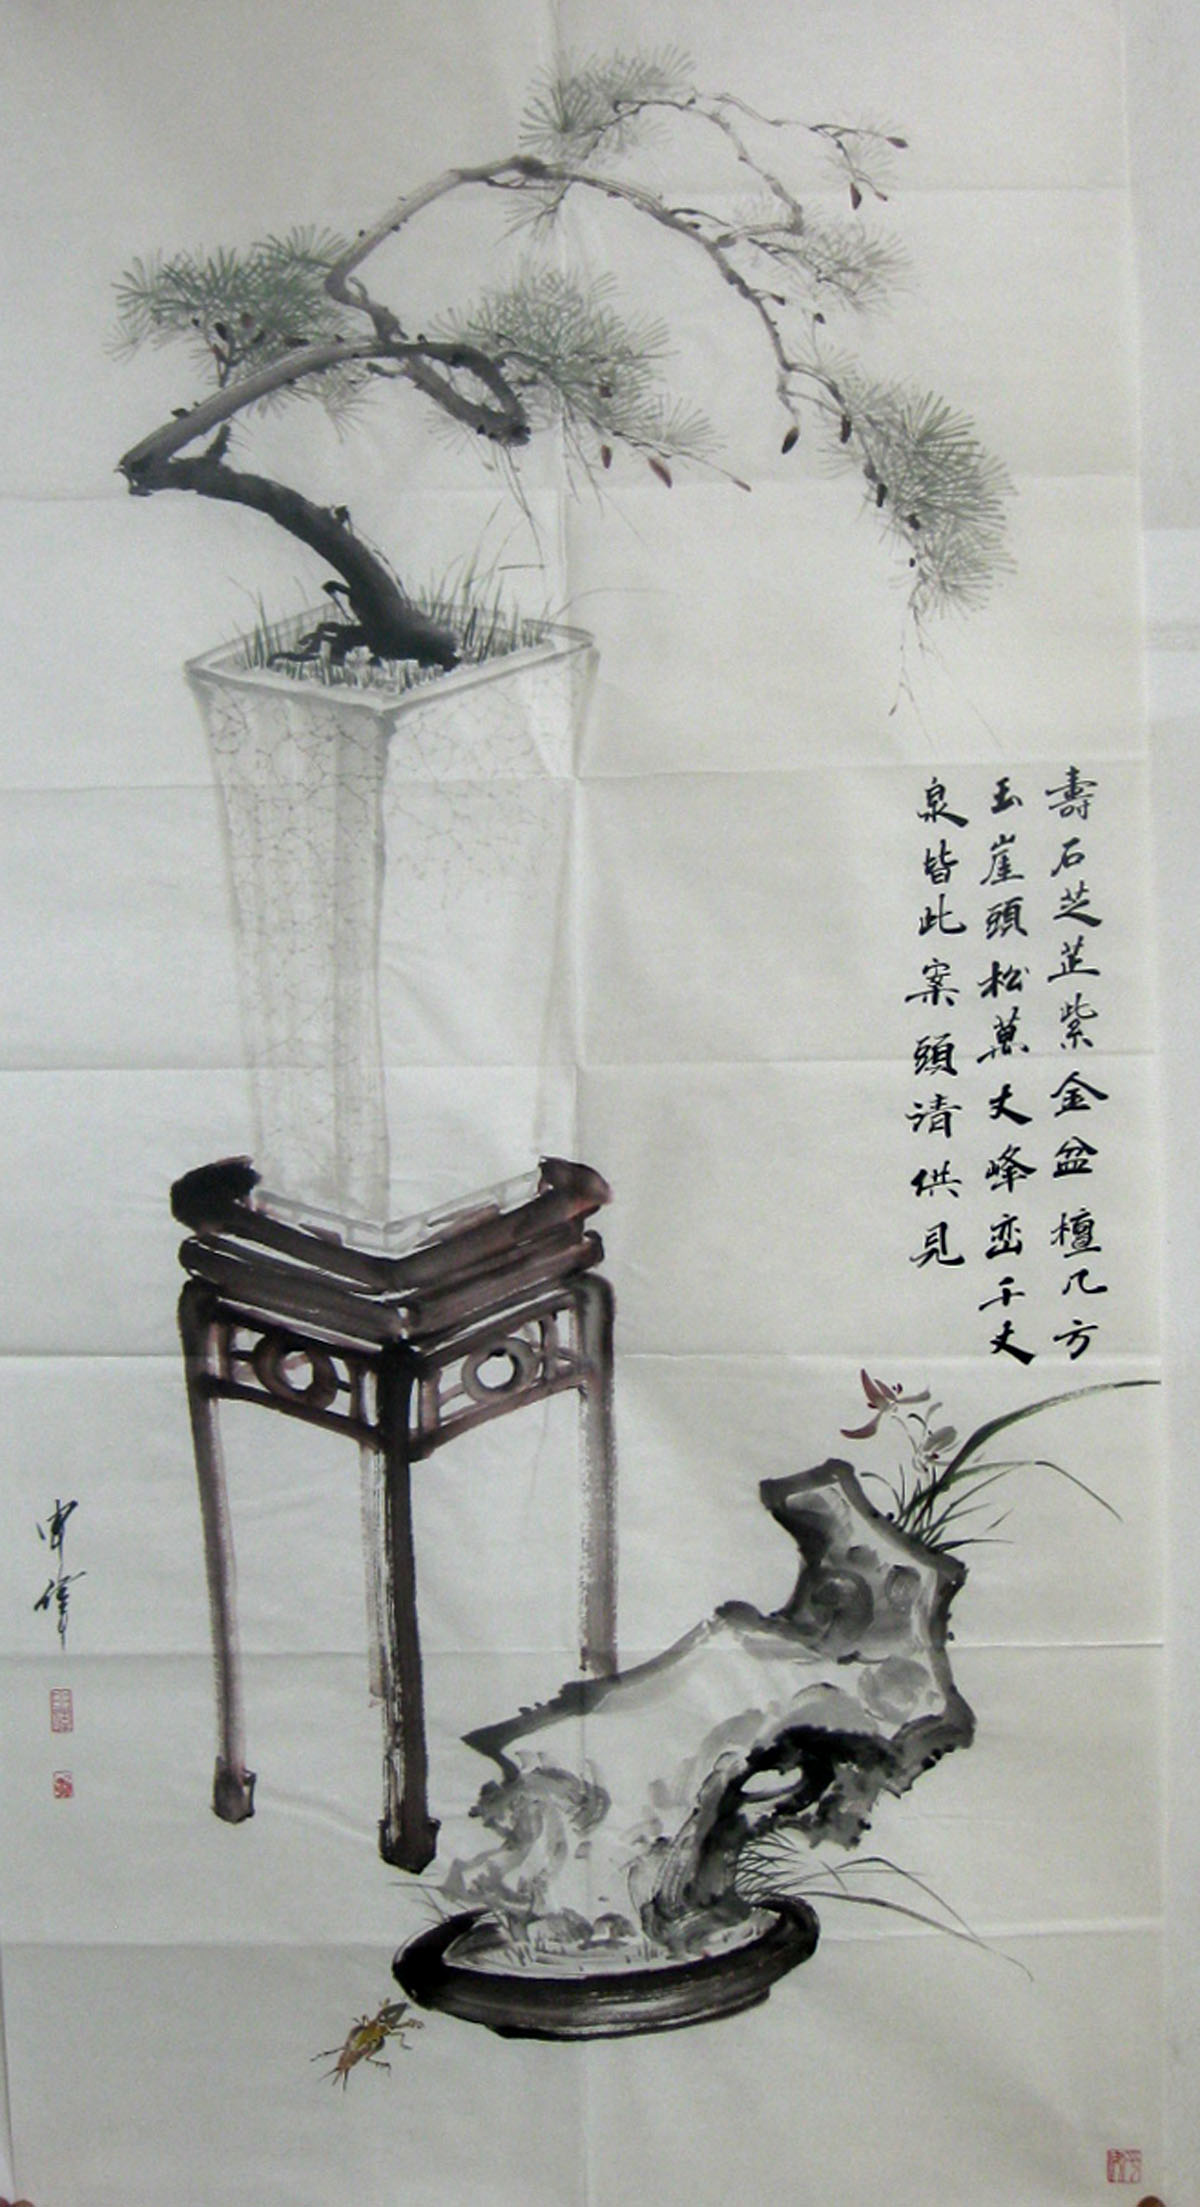 壽石芝芷紫金盆檀几方
玉崖頭松萬丈峰峦千丈
泉皆此案頭请供見